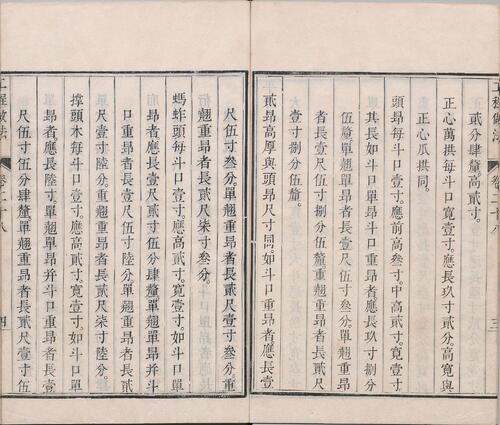 工程做法
卷二十八
三
正貳分肆釐高貳寸。
正心萬拱每斗口寬壹寸。應長玖寸貳分。高寬與
正心瓜拱同。
頭昂每斗口寬壹寸。應前高叁寸。中高貳寸。寬壹寸。
其長如斗口單昂并斗口重昂者應長玖寸捌分
伍釐。單翹單昂者長壹尺伍寸叁分。單翹重昂
者長壹尺伍寸捌分伍釐。重翹重昂者長貳尺
壹寸捌分伍釐。
貳昂高厚與頭昂尺寸同。如斗口重昂者應長壹
尺伍寸叁分。單翹重昂者長貳尺壹寸叁分。重
翹重昂者長貳尺柒寸叁分。
螞蚱頭每斗口壹寸。應高貳寸。寬壹寸。如斗口單
昂者應長壹尺貳寸伍分肆釐。單翹單昂并斗
口重昂者長壹尺伍寸陸分。單翹重昂者長貳
尺壹寸陸分。重翹重昂者長貳尺柒寸陸分。
撐頭木每斗口壹寸。應高貳寸。寬壹寸。如斗口單
昂者應長陸寸。單翹單昂并斗口重昂者長壹
尺伍寸伍分肆釐。單翹重昂者長貳尺壹寸伍
工程做法
卷二十八
四